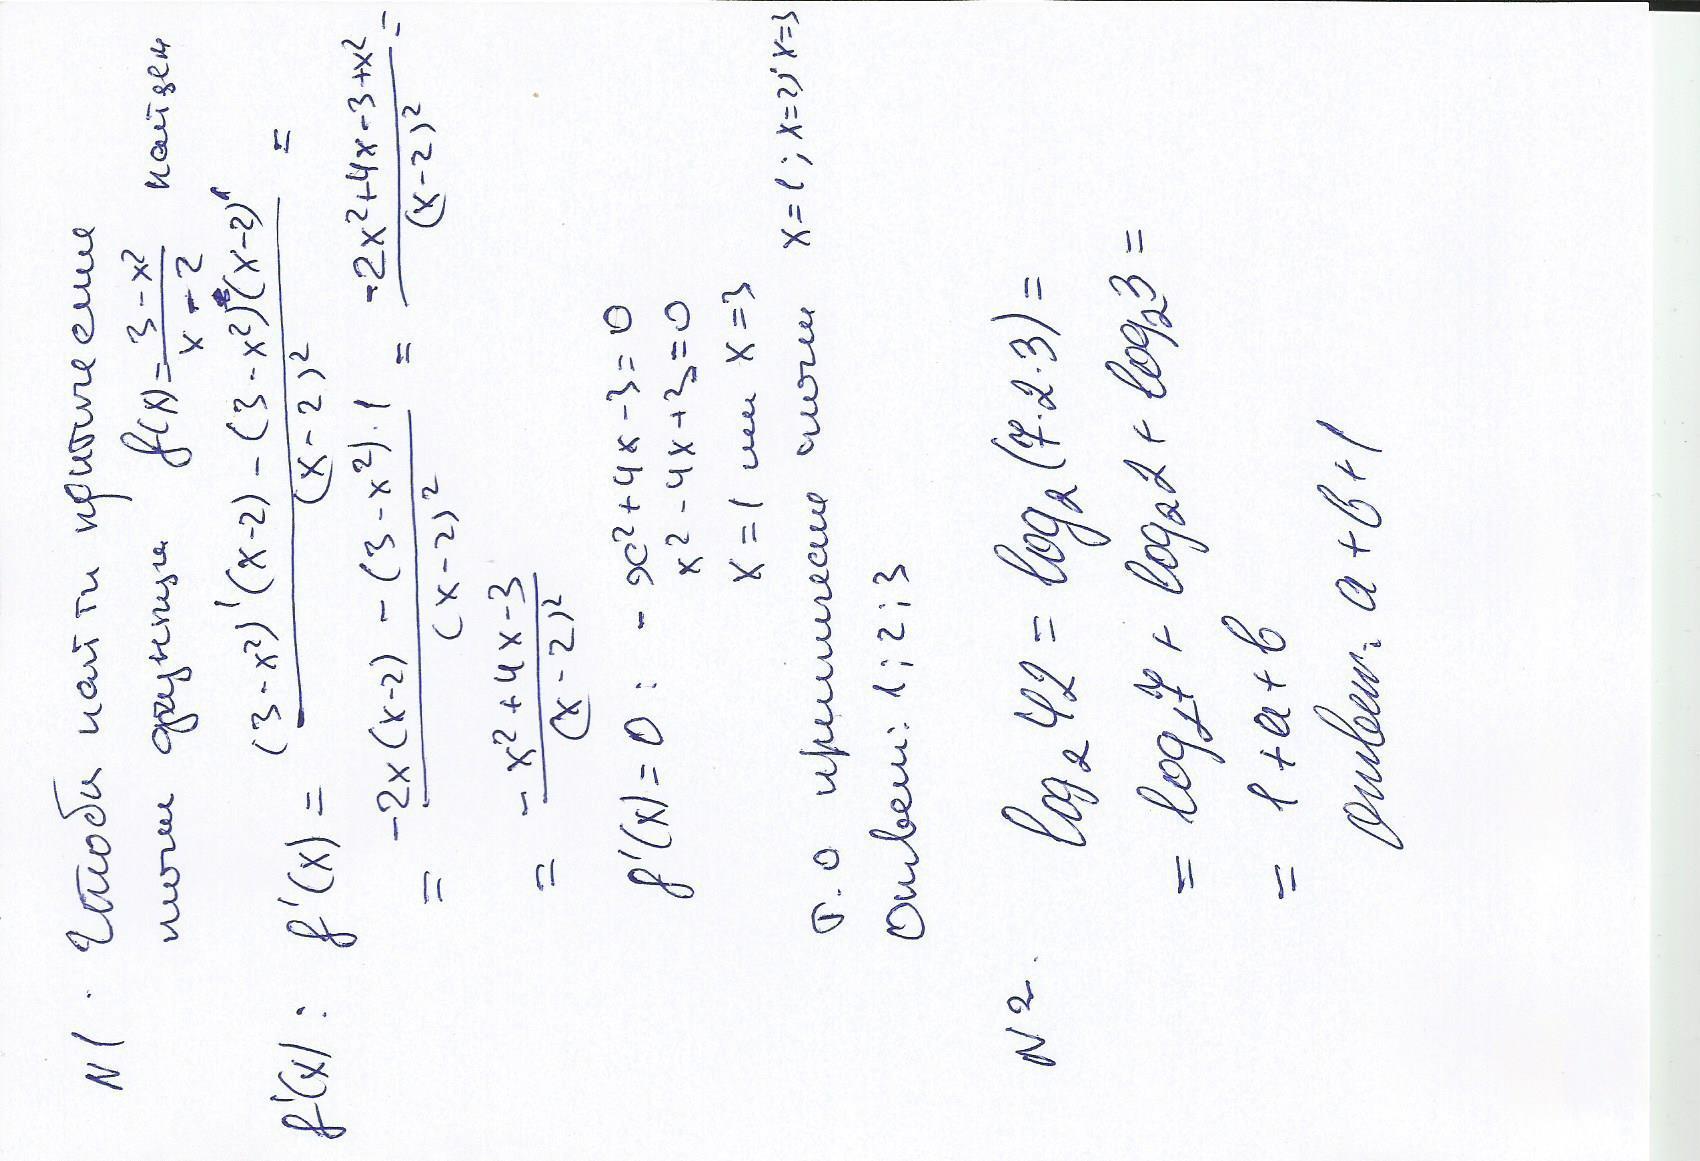 N1. Чтоби найти критические
точи функции f(x) = (3 - x²)/(x - 2) найдем
f'(x): f'(x) = ((3 - x²)'(x - 2) - (3 - x²)(x - 2)')/(x - 2)² =
= (-2x(x - 2) - (3 - x²)·1)/(x - 2)² = (-2x² + 4x - 3 + x²)/(x - 2)² =
= (-x² + 4x - 3)/(x - 2)²
f'(x) = 0: -x² + 4x - 3 = 0
x² - 4x + 3 = 0
x = 1 или x = 3
т.о критические точки x = 1; x = 2; x = 3
Ответ: 1; 2; 3
N2. log₂42 = log₂(7·2·3) =
= log₂7 + log₂2 + log₂3 =
= 1 + a + b
Ответ: a + b + 1